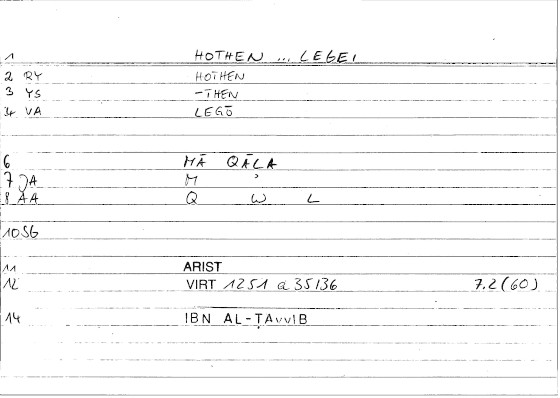 1 HOTHEN ... LEGEI
2 RY HOTHEN
3 YS -THEN
4 VA LEGŌ
6 MĀ QĀLA
7 JA M ʾ
8 AA Q W L
10 SG
11 ARIST
12 VIRT 1251 a 35/36 7.2 (60)
14 IBN AL-ṬAYYIB